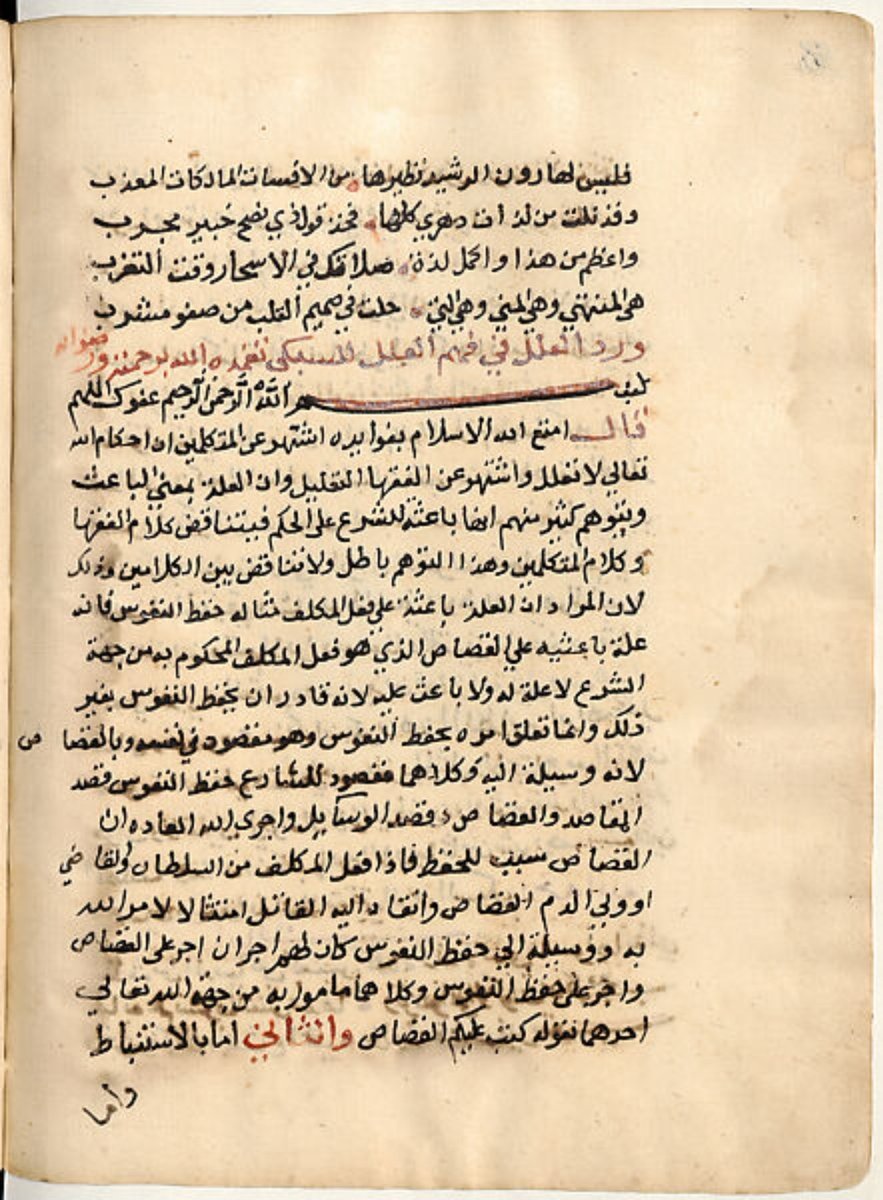 فليس لهارون الرشيد نظيرها من الانسات المالكات المعذب
وقد نلت من لذات دهري كلها فخذ قول ذي نصح خبير مجرب
واعظم من هذا واكمل لذة صلاتك في الاسحار وقت التغرب
هي المنتهي وهي المني وهي التي حلت في صميم القلب من صفو مشرب
ورد العلل في فهم العلل للسبكي تغمده الله برحمته ورضوانه
بسم الله الرحمن الرحيم عفوك اللهم
قال امتع الله الاسلام بفوايده اشتهر عن المتكلمين ان احكام الله
تعالي لا تعلل واشتهر عن الفقها التعليل وان العلة بمعني الباعث
ويتوهم كثير منهم انها باعثة للشرع علي الحكم فيتناقض كلام الفقها
وكلام المتكلمين وهذا التوهم باطل ولا تناقض بين الكلامين وذلك
لان المراد ان العلة باعثة علي فعل المكلف مثاله حفظ النفوس فانه
علة باعثيه علي القصاص الذي هو فعل المكلف المحكوم به من جهة
الشرع لا علة له ولا باعث عليه لانه قادر ان يحفظ النفوس بغير
ذلك وانما تعلق امره بحفظ النفوس وهو مقصود في نفسه وبالقصا ص
لانه وسيلة اليه وكلاهما مقصود للشارع حفظ النفوس قصد
المقاصد والقصاص قصد الوسايل واجري الله العاده ان
القصاص سبب للحفظ فاذا فعل المكلف من السلطان والقاضي
او ولي الدم القصاص وانقاد اليه القاتل امتثالا لامر الله
به ووسيلة الي حفظ النفوس كان لهم اجران اجر علي القصاص
واجر علي حفظ النفوس وكلاهما مامور به من جهة الله تعالي
احدهما بقوله كتب عليكم القصاص والثاني اما بالاستنباط
واما